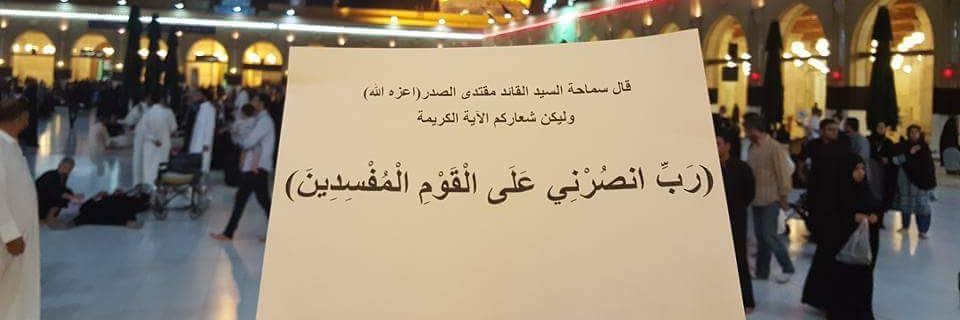 قال سماحة السيد القائد مقتدى الصدر(اعزه الله)
وليكن شعاركم الآية الكريمة
(رَبِّ انصُرْنِي عَلَى الْقَوْمِ الْمُفْسِدِينَ)